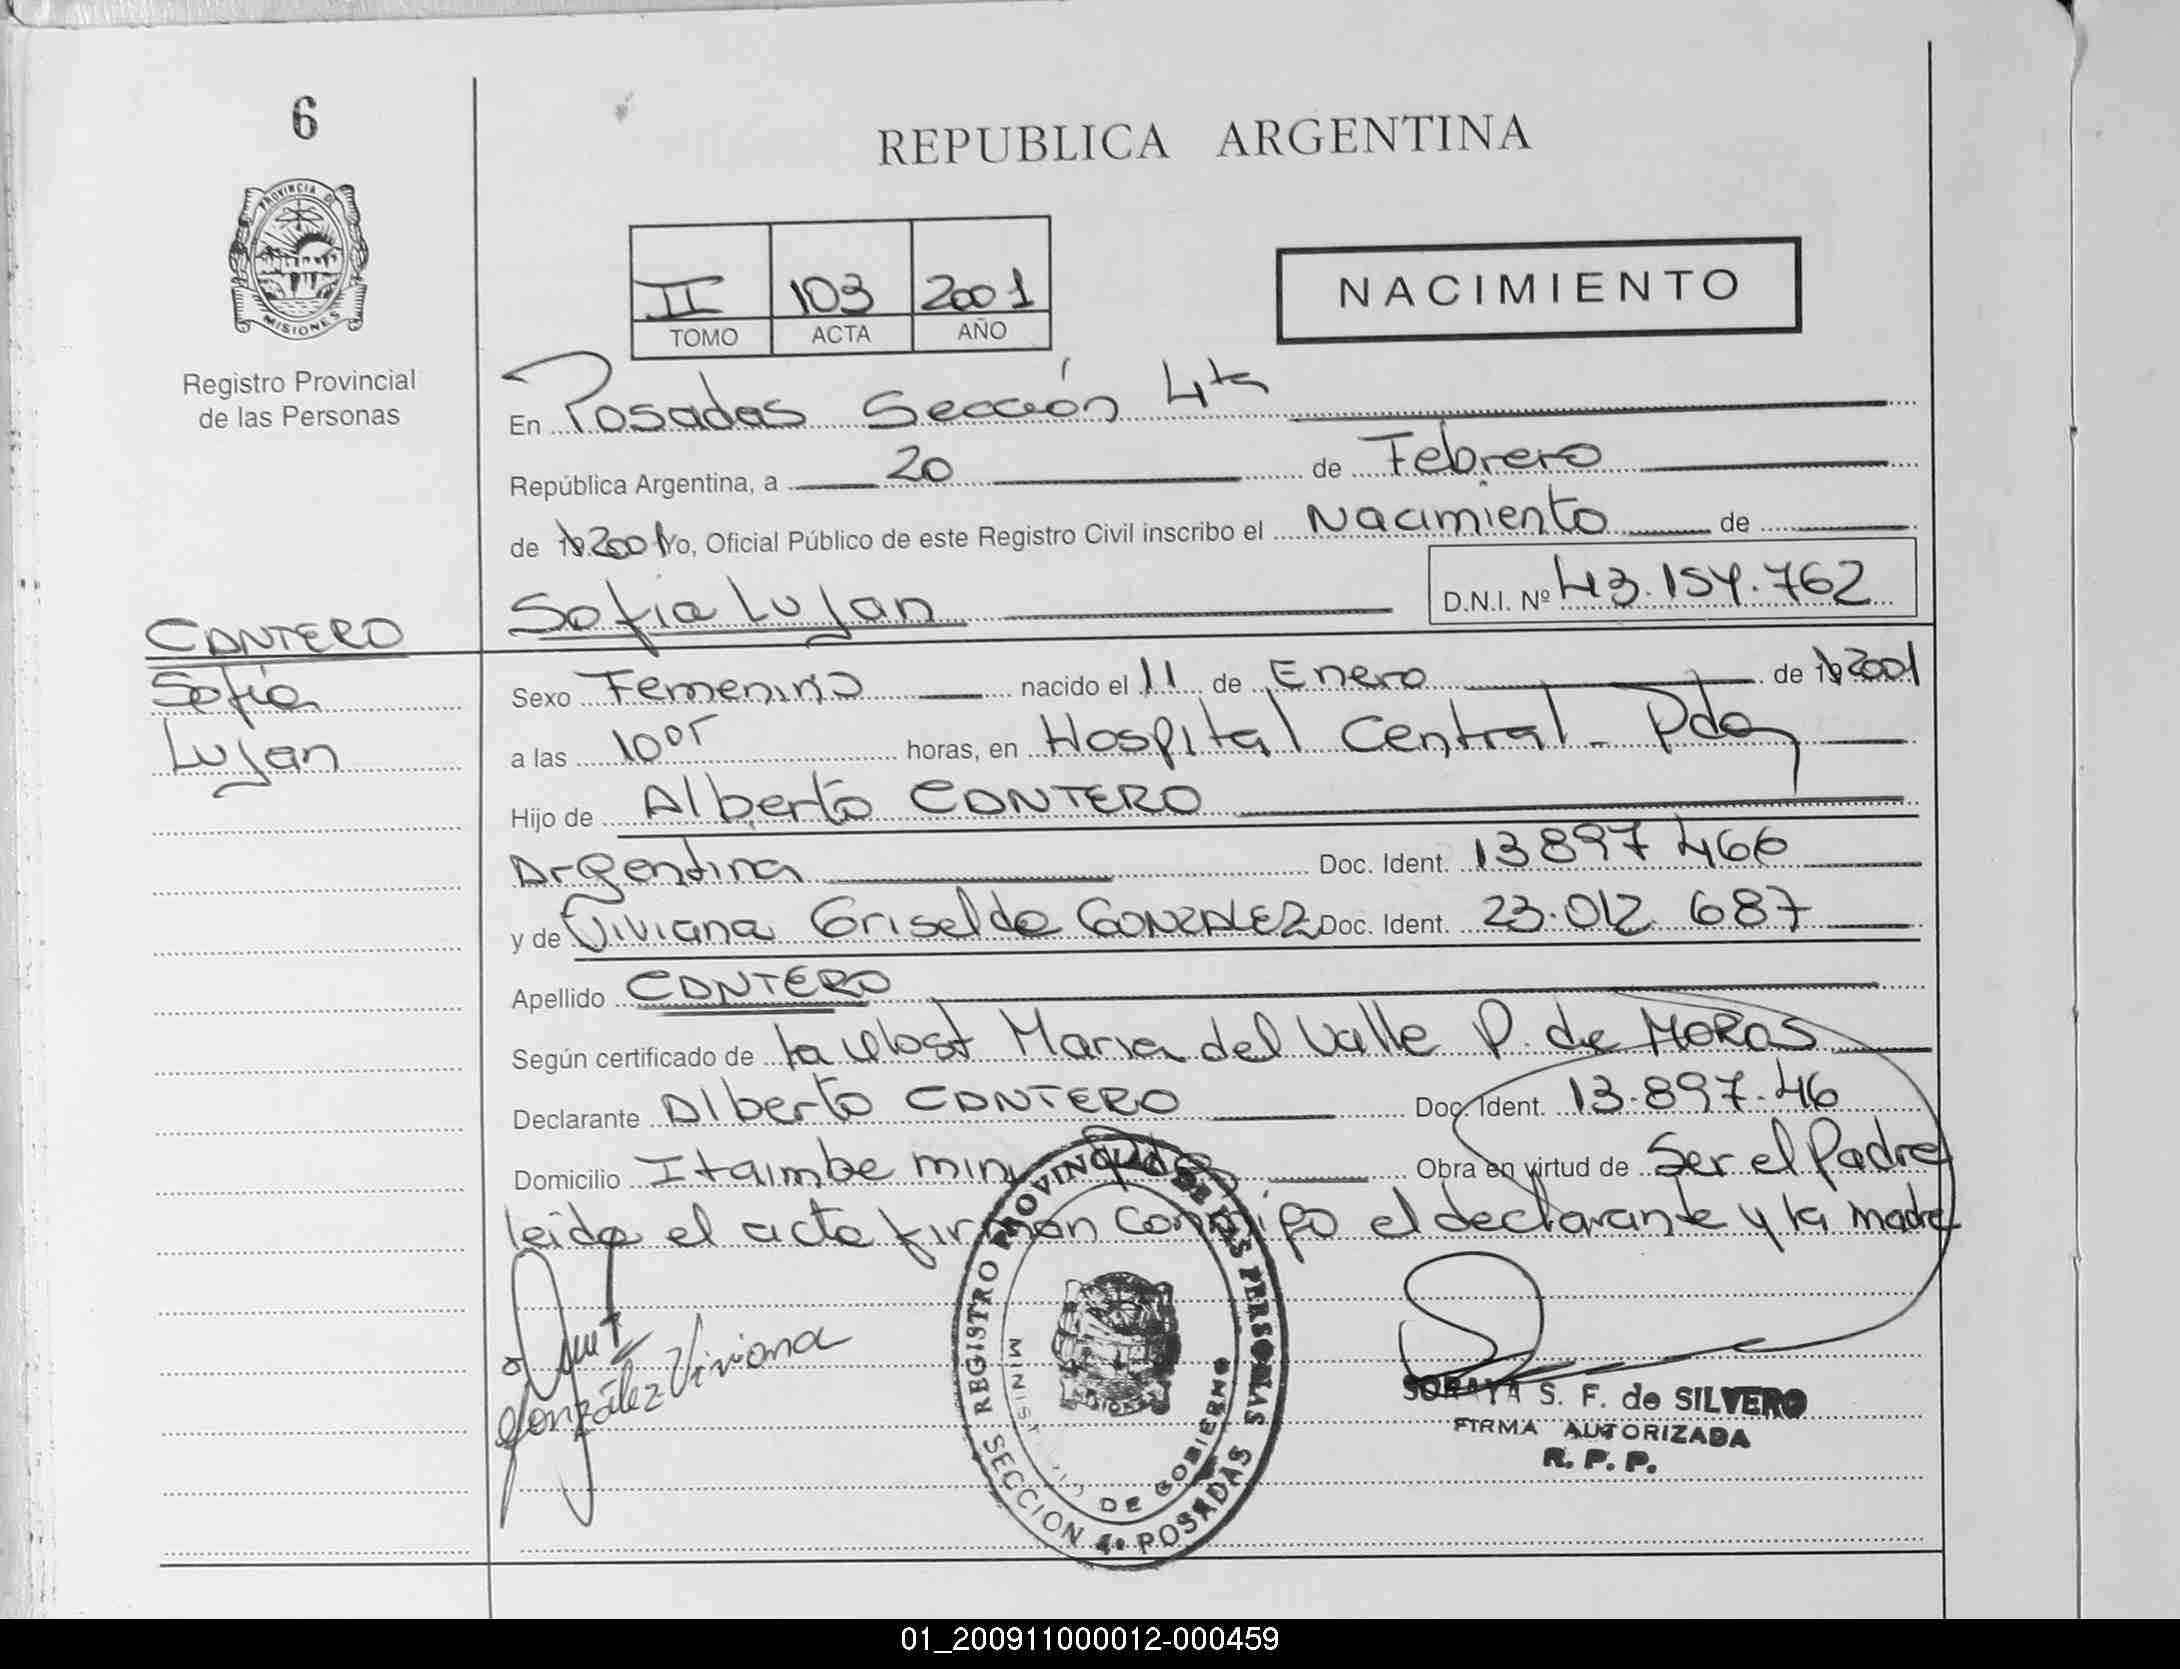 6
REPUBLICA ARGENTINA
PROVINCIA DE
MISIONES
II 103 2001
TOMO ACTA AÑO
NACIMIENTO
Registro Provincial
de las Personas
En Posadas Sección 4ta
República Argentina, a 20 de Febrero
de 2001 Yo, Oficial Público de este Registro Civil inscribo el Nacimiento de
Sofia Lujan D.N.I. Nº 43.154.762
CANTERO
Sofia
Lujan
Sexo Femenino nacido el 11 de Enero de 2001
a las 10 05 horas, en Hospital Central - Pdas
Hijo de Alberto CANTERO
Argentina Doc. Ident. 13 897 466
y de Viviana Griselda GONZALEZ Doc. Ident. 23.012.687
Apellido CANTERO
Según certificado de la Obst Maria del Valle P. de MORAS
Declarante Alberto CANTERO Doc. Ident. 13.897.46
Domicilio Itaimbe mini Obra en virtud de Ser el Padre
leida el acta firman conmigo el declarante y la madre
González Viviana
REGISTRO PROVINCIAL DE LAS PERSONAS
DE GOBIERNO
SECCION 4º POSADAS
SORAYA S. F. de SILVERO
FIRMA AUTORIZADA
R. P. P.
01_200911000012-000459